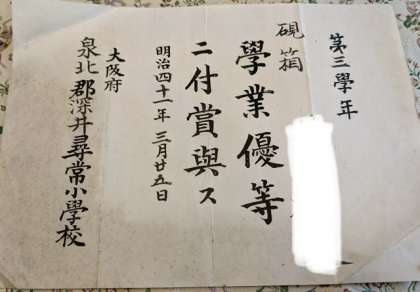 第三學年
硯箱
學業優等
ニ付賞與ス
明治四十一年三月廿五日
大阪府
泉北郡深井尋常小學校